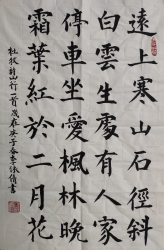 遠上寒山石徑斜
白雲生處有人家
停車坐愛楓林晚
霜葉紅於二月花
杜牧詩山行一首歲在庚子書